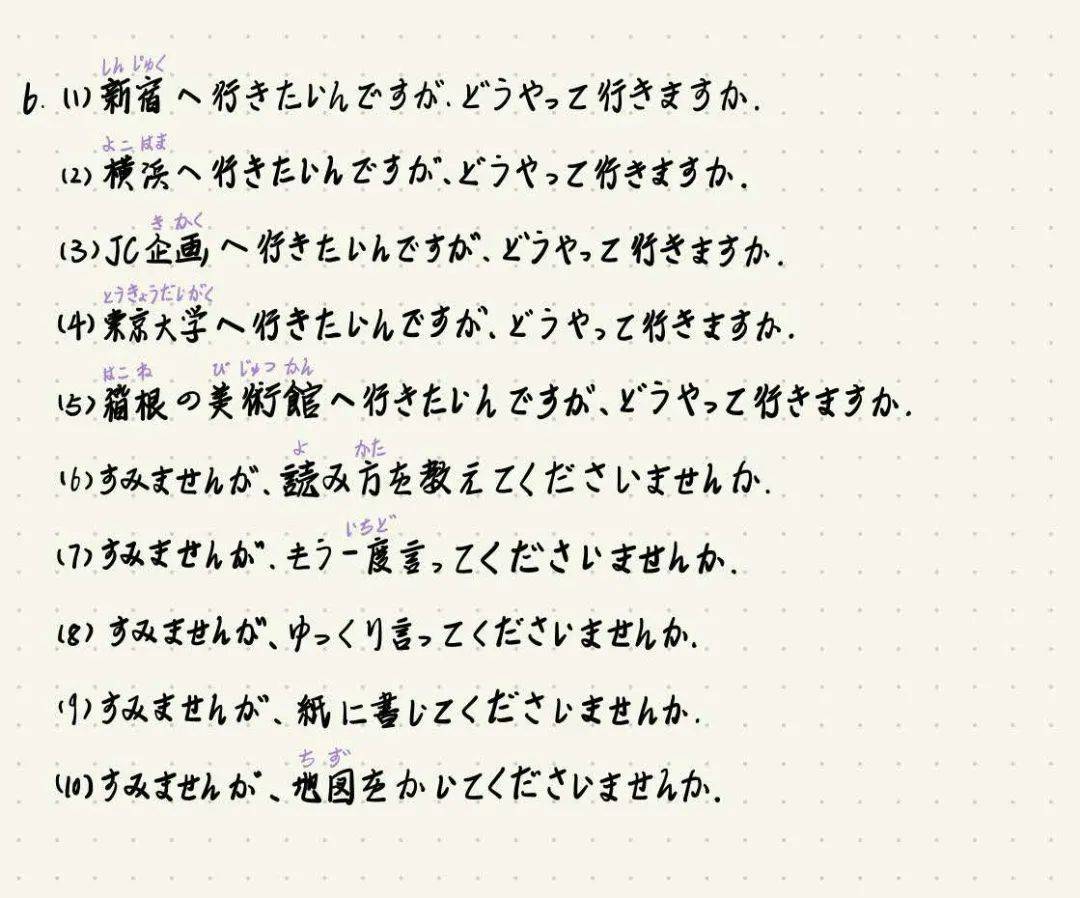 しんじゅく
6. (1) 新宿へ行きたいんですが、どうやって行きますか.
よこはま
(2) 横浜へ行きたいんですが、どうやって行きますか.
きかく
(3) JC企画へ行きたいんですが、どうやって行きますか.
とうきょうだいがく
(4) 東京大学へ行きたいんですが、どうやって行きますか.
はこね びじゅつかん
(5) 箱根の美術館へ行きたいんですが、どうやって行きますか.
よ かた
(6) すみませんが、読み方を教えてくださいませんか.
いちど
(7) すみませんが、もう一度言ってくださいませんか.
(8) すみませんが、ゆっくり言ってくださいませんか.
(9) すみませんが、紙に書いてくださいませんか.
ちず
(10) すみませんが、地図をかいてくださいませんか.